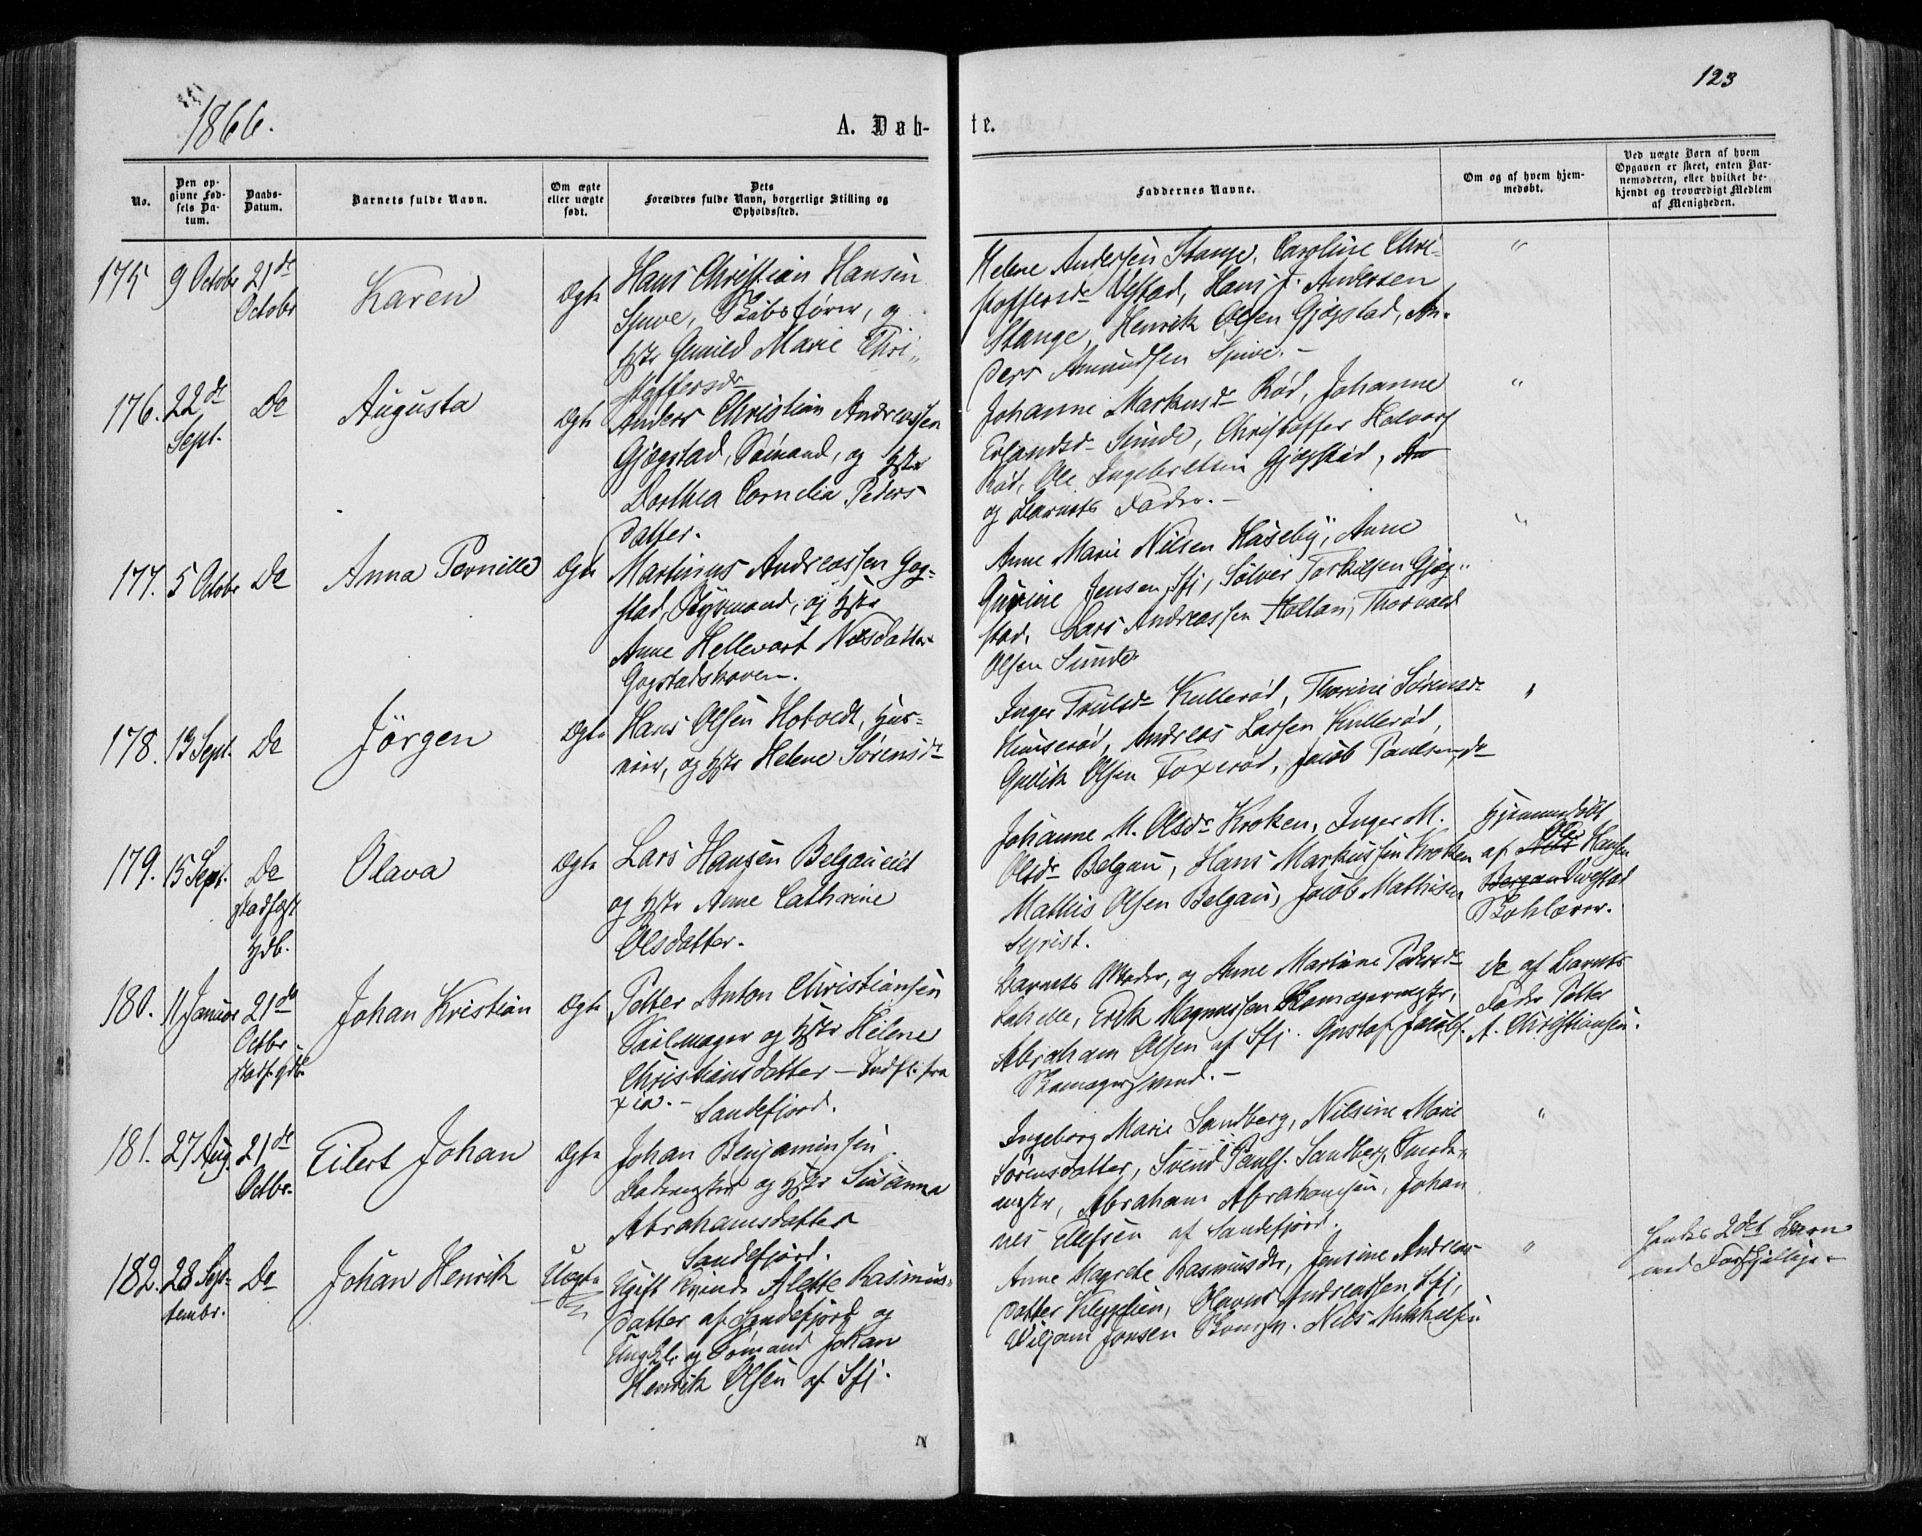 1866.
A. Døb-
te.
123
No.
Den op-
givne Fød-
sels Da-
tum.
Daabs-
Datum.
Barnets fulde Navn.
Om ægte
eller uægte
født.
Dets
Forældres fulde Navn, borgerlige Stilling og
Opholdssted.
Faddernes Navne.
Om og af hvem hjem-
medøbt.
Ved uægte Børn af hvem
Opgaven er skeet, enten Bar-
nemoderen, eller hvilket be-
kjendt og troværdigt Medlem
af Menigheden.
175
9 Octobr
21de
Octobr
Karen
Ægte
Hans Christian Hansen
Skibsfører, og
Hstr Gunild Marie Chri-
stoffersdr
Helene Andersen Stange, Caroline Chri-
stoffersdr Vestad, Hans J. Andersen
Stange, Henrik Olsen Gjøgstad, An-
ders Amundsen
"
176.
22de
Sept.
Do
Augusta
Ægte
Anders Christian Andreassen
Gjøgstad, Sømand, og Hstr
Dorthea Cornelia Peders-
datter.
Johanne Markusdr Rød, Johanne
Erlandsdr Sunde, Christoffer Halvors
Rød, Ole Ingebretsen Gjøgstad, An
og Barnets Fader. -
"
177.
5 Octobr
Do
Anna Pernille
Ægte
Martinus Andreassen Gog-
stad, Styrmand, og Hstr
Anne Hellevart Nilsdatter
Gogstadskoven.
Anne Marie Nilsen Haseby, Anne
Gurine Jensen, Sfj, Sølver Torkilsen Gjøg-
stad, Lars Andreassen Holtan, Thorvald
Olsen Sunde
"
178.
13 Sept.
Do
Jörgen
Ægte
Hans Olsen Hotvedt, Hus-
mand, og Hstr Helene Sørensdr
Inger Trulsdr Kullerød, Thorine Sørensdr
Unneberg, Andreas Larsen Kullerød,
Gulbrand Olsen Foxerød, Jacob Paulsen, do
"
179.
15 Sept.
Do
stadfæst
Hjdb.
Olava
Ægte
Lars Hansen Belgaueiet
og Hstr Anne Cathrine
Olsdatter.
Johanne M. Olsdr Kroken, Inger M.
Olsdr Belgau, Hans Markussen Kroken
Mathis Olsen Belgau, Jacob Mathisen
Syrist.
Hjemmedøbt
af Nils Ole Hansen
Bergan Vegstad
Skolelærer.
180.
11 Januar
21de
Octbr
stadf. Hjdb.
Johan Kristian
Ægte
Petter Anton Christiansen
Seilmager og Hstr Helene
Christiansdatter - Indfl. fra
xia. - Sandefjord.
Barnets Moder, og Anne Martine Pedersdr
Erik Magnussen Skomagermester,
Abraham Olsen af Sfj. Gustaf Jacobs.
Skomagersvend. -
Do af Barnets
Fader Petter
A. Christiansen.
181.
27 Aug.
21de
Octbr.
Eilert Johan
Ægte
Johan Benjaminsen
Bademester og Hstr Susanna
Abrahamsdatter
Sandefjord.
Ingeborg Marie Sandberg, Nilsine Marie
Sørensdatter, Svend Pauls. Sandberg, Smede-
mester, Abraham Abrahamsen, Johan
nes Ellefsen af Sandefjord.
"
182.
28 Sept-
tembr.
Do
Johan Henrik
Uægte
Ugift Kvinde Alette Rasmus-
datter af Sandefjord og
Ungkl. og Sømand Johan
Henrik Olsen af Sfj.
Anne Magrete Rasmusdtr, Jensine Andreas
datter Olavus Andreassen, Sfj,
Wiljam Jensen Nils Mikkelsen.
"
hendes 2det Barn
med Forskjellige.